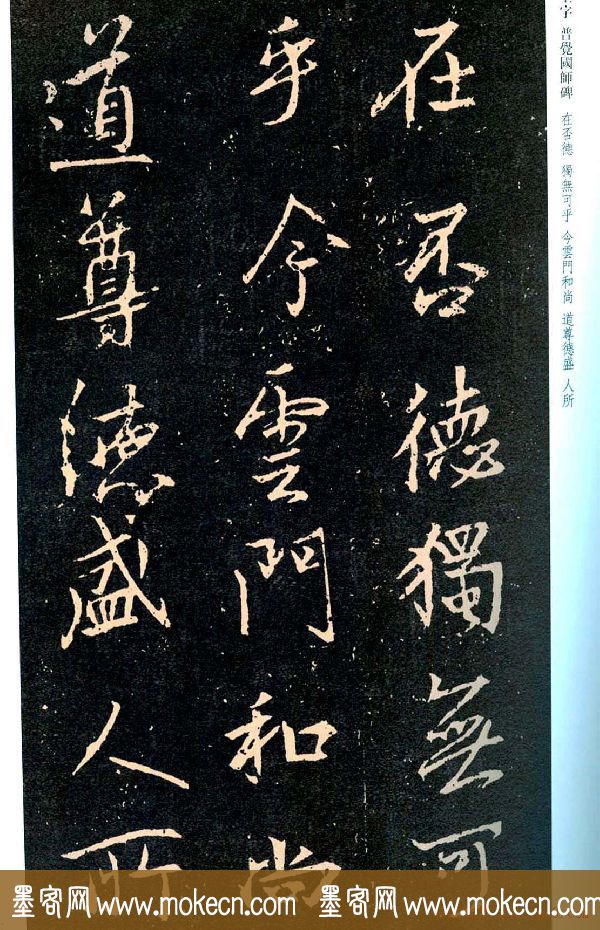 在否德獨無可
乎今雲門和尚
道尊德盛人所
字 普覺國師碑 在否德 獨無可乎 今雲門和尚 道尊德盛 人所
墨客网 www.mokecn.com 墨客网 www.mokecn.com